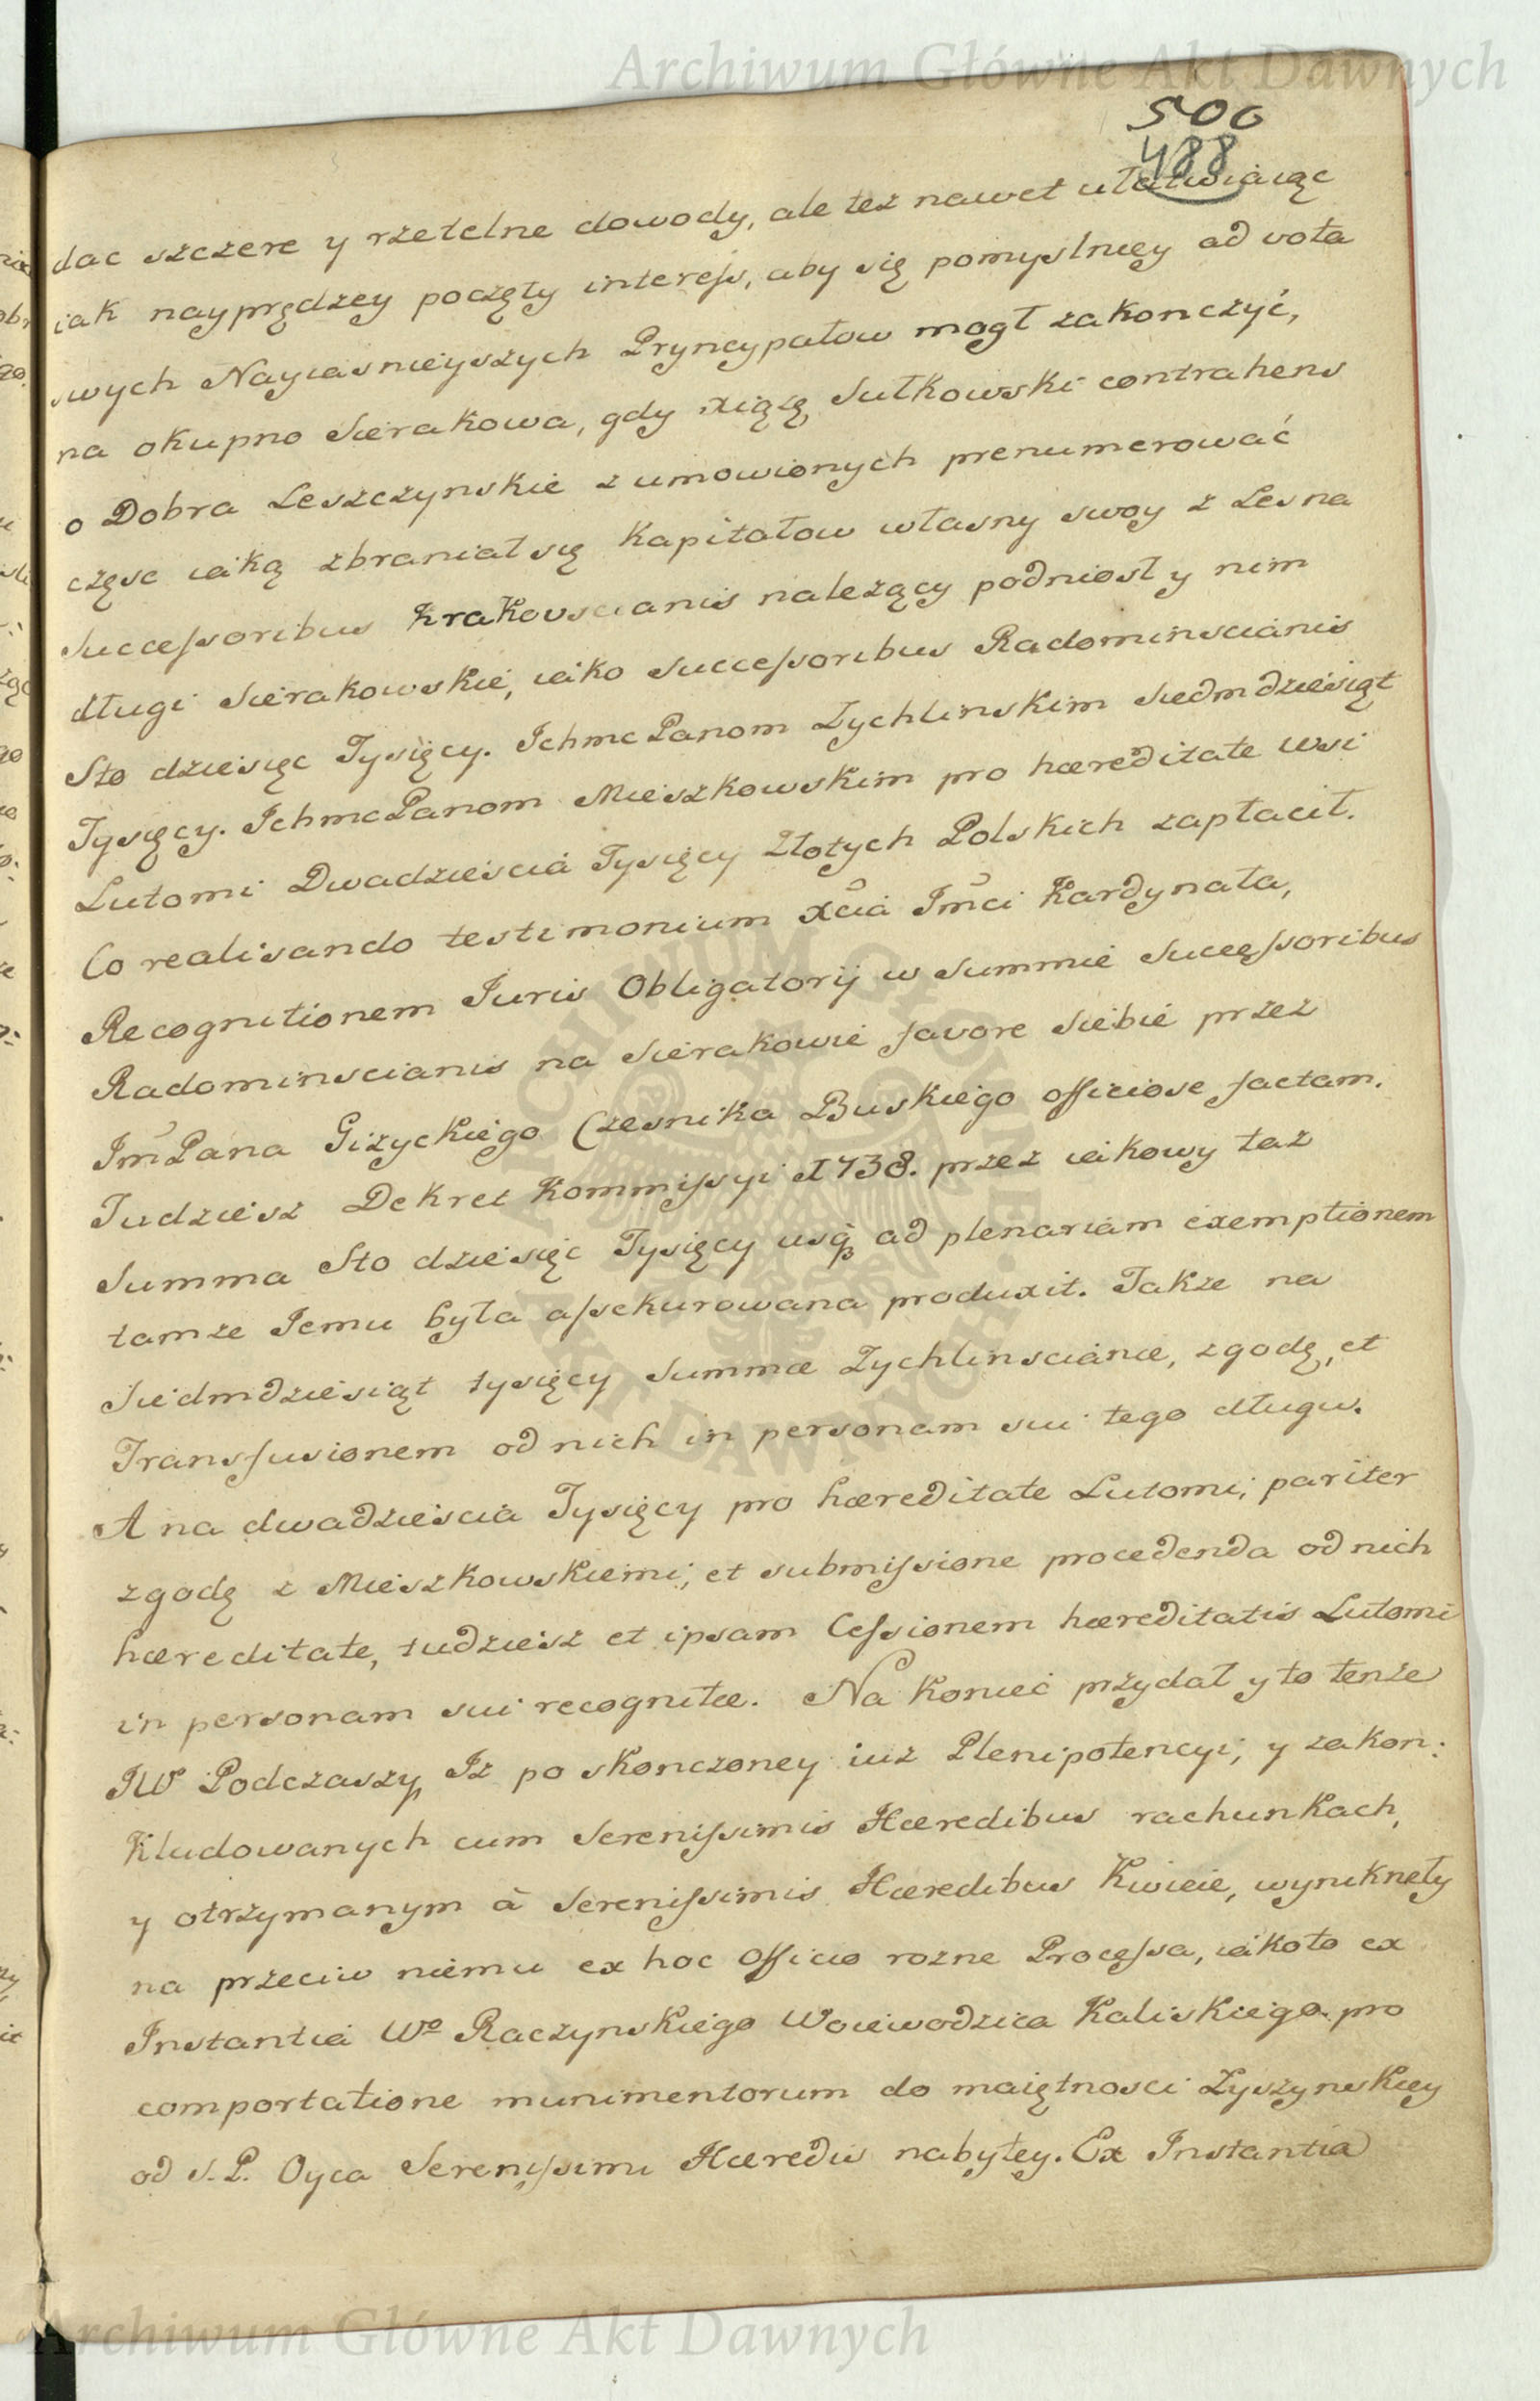 Archiwum Główne Akt Dawnych
500
488
dac szczere y rzetelne dowody, ale tez nawet ułatwiaiąc
iak nayprędzey poczęty interess, aby się pomyslniey ad vota
swych Nayiasnieyszych Pryncypałow mogł zakonczyć,
na okupno Sierakowa, gdy xiązę Sułkowski contrahens
o Dobra Leszczynskie z umowionych prenumerować
częsc iaką zbraniał się Kapitałow własny swoy z Lesna
Successoribus Krakovscianis nalezący podniosł y nim
długi Sierakowskie, iako Successoribus Radominscianis
Sto dziesięc Tysięcy. Ichmc Panom Zychlinskim Siedmdziesiąt
Tysięcy. Ichmc Panom Mieszkowskim pro hæreditate wsi
Lutomi Dwadziescia Tysięcy Złotych Polskich zapłacił.
Co realisando testimonium Xcia Jmci Kardynała,
Recognitionem Iuris Obligatorij w Summie Sucęssoribus
Radominscianis na Sierakowie favore Siebie przez
Jm Pana Gizyckiego Czesnika Buskiego officiose factam.
Tudziesz Dekret Kommissyi 1738. przez iakowy taz
Summa Sto dziesięc Tysięcy usq ad plenariam exemptionem
tamze Jemu była assekurowana produxit. Takze na
Siedmdziesiąt tysięcy Summæ Zychlinscianæ, zgodę, et
Transfusionem od nich in personam sui tego długu.
A na dwadziescia Tysięcy pro hæreditate Lutomi, pariter
zgodę z Mieszkowskiemi, et submissione procedenda od nich
hæreditate, tudziesz et ipsam Cessionem hæreditatis Lutomi
in personam sui recognitæ. Na koniec przydał y to tenze
JW Podczaszy Iz po skonczoney iuz Plenipotencyi, y zakon:
kludowanych cum Serenissimis Hæredibus rachunkach,
y otrzymanym à Serenissimis Hæredibus Kwicie, wyniknęły
na przeciw niemu ex hoc Officio rozne Processa, iakoto ex
Instantia Wo Raczynskiego Woiewodzica Kaliskiego pro
comportatione munimentorum do maiętnosci Zyszynskiey
od S. P. Oyca Serenissimi Hæredis nabyłey. Ex Instantia
ARCHIWUM GŁÓWNE AKT DAWNYCH
Archiwum Główne Akt Dawnych